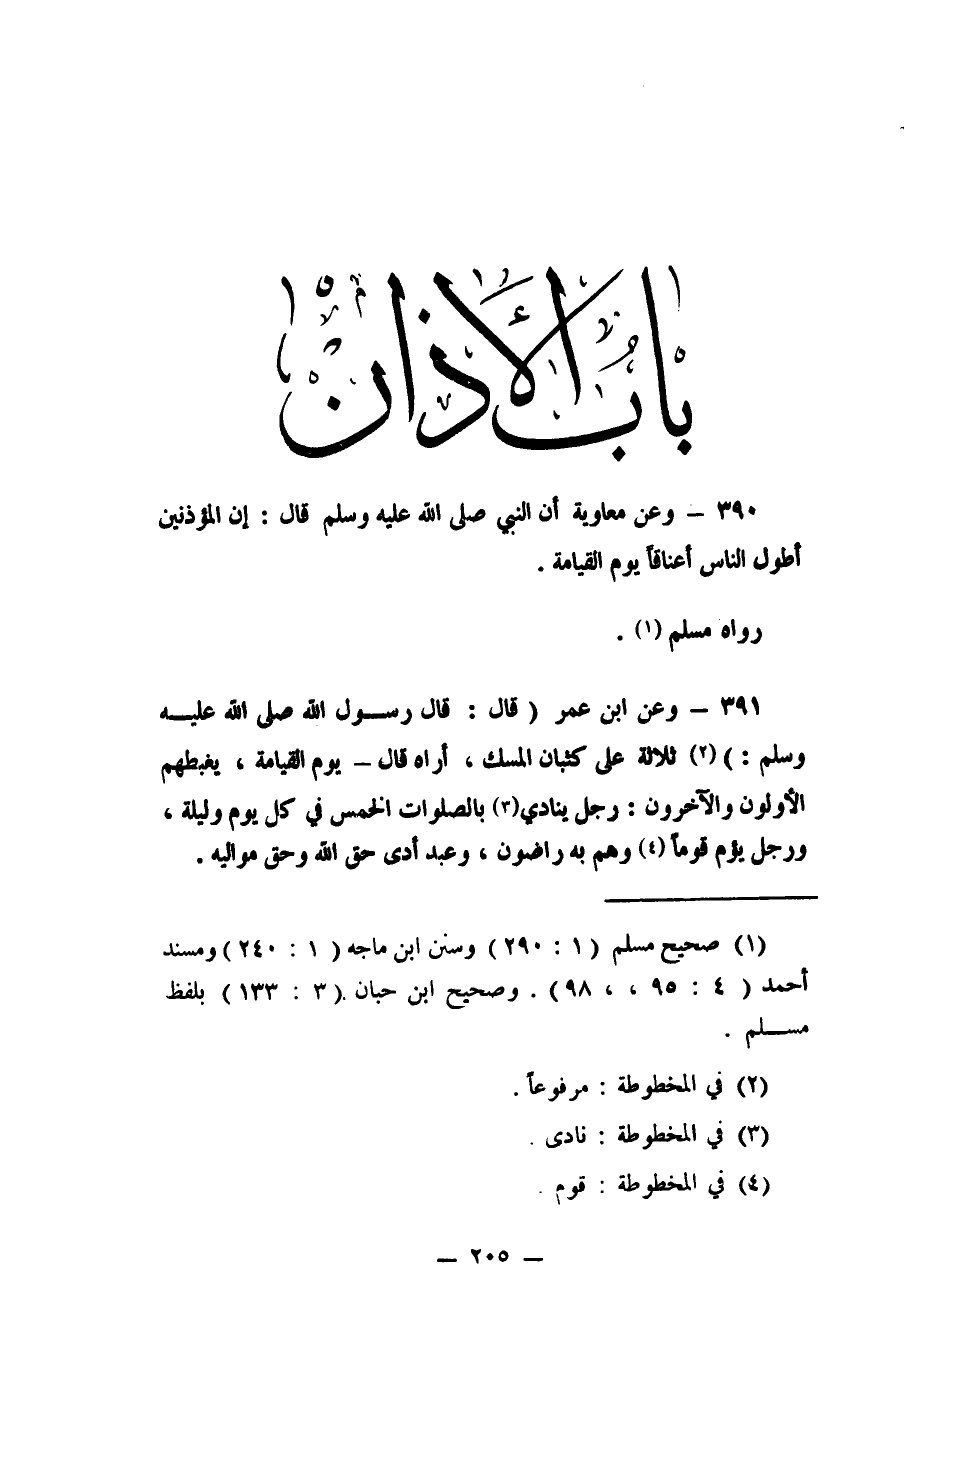 باب الأذان
٣٩٠ – وعن معاوية أن النبي صلى الله عليه وسلم قال : إن المؤذنين
أطول الناس أعناقاً يوم القيامة .
رواه مسلم (١) .
٣٩١ – وعن ابن عمر ( قال : قال رســول الله صلى الله عليــه
وسلم : ) (٢) ثلاثة على كثبان المسك ، أراه قال – يوم القيامة ، يغبطهم
الأولون والآخرون : رجل ينادي(٣) بالصلوات الخمس في كل يوم وليلة ،
ورجل يؤم قوماً (٤) وهم به راضون ، وعبد أدى حق الله وحق مواليه .
(١) صحيح مسلم ( ١ : ٢٩٠ ) وسنن ابن ماجه ( ١ : ٢٤٠ ) ومسند
أحمد ( ٤ : ٩٥ ، ، ٩٨ ) . وصحيح ابن حبان .( ٣ : ١٣٣ ) بلفظ
مســلم .
(٢) في المخطوطة : مرفوعاً .
(٣) في المخطوطة : نادى .
(٤) في المخطوطة : قوم .
– ٢٠٥ –